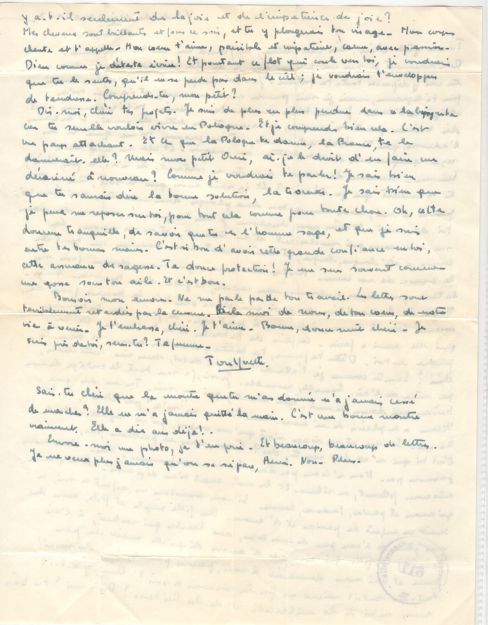 y a-t-il seulement de la joie et de l'impatience de joie ?
Mes cheveux sont brillants et pour ce soir, et tu y plongerais ton visage. Mon corps
chante et t'appelle. Mon cœur t'aime, paisible et impatient, cœur, avec passion.
Dieu comme je déteste écrire ! Et pourtant ce flot qui coule vers toi, je voudrais
que tu le sentes, qu'il ne se perde pas dans le ciel ; je voudrais t'envelopper
de tendresse. Comprends-tu, mon petit ?
Dis-moi, chéri, tes projets. Je suis de plus en plus perdue dans
cas tu semble vouloir vivre en Pologne. Et je comprends bien cela. C'est
un pays attachant. Et ce que la Pologne te donne, la France, te le
donnerait-elle ? Mais mon petit, ai-je le droit d'en faire un
déraciné à nouveau ? Comme je voudrais te parler ! Je sais bien
que tu saurais dire la bonne solution, la trouver. Je sais bien que
je peux me reposer sur toi, pour tout cela comme pour toute chose. Oh, cette
douceur tranquille, de savoir que tu es l'homme sage, et que je suis
entre tes bonnes mains. C'est si bon d'avoir cette grande confiance en toi,
cette assurance de sagesse. Ta douce protection ! Je me sens souvent comme
une gosse sous ton aile. Et c'est bon.
Bonsoir mon amour. Ne me parle pas de ton travail. Les lettres sont
terriblement retardées par la censure. Parle moi de nous, de ton cœur, de notre
vie à venir. Je t'embrasse, chéri. Je t'aime. Bonne, douce nuit chéri. Je
suis près de toi, sens-tu ? Ta femme.
Ton Yvette.
Sais-tu chéri que la montre que tu m'as donnée n'a jamais cessé
de marcher ? Elle ne m'a jamais quitté la main. C'est une bonne montre
vraiment. Elle a dix ans déjà !..
Envoie-moi une photo, je t'en prie. Et beaucoup, beaucoup de lettres.
Je ne veux plus jamais qu'on se sépare, Non. Plus.